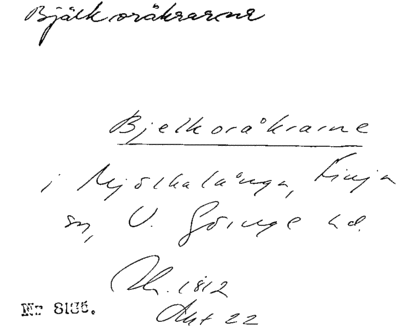 Bjälkoråkrarne
Bjelkoråkrarne
i Mjölkalånga, Finja
sn, V. Göinge hd.
Sk. 1812
Akt 22
Nr 8135.